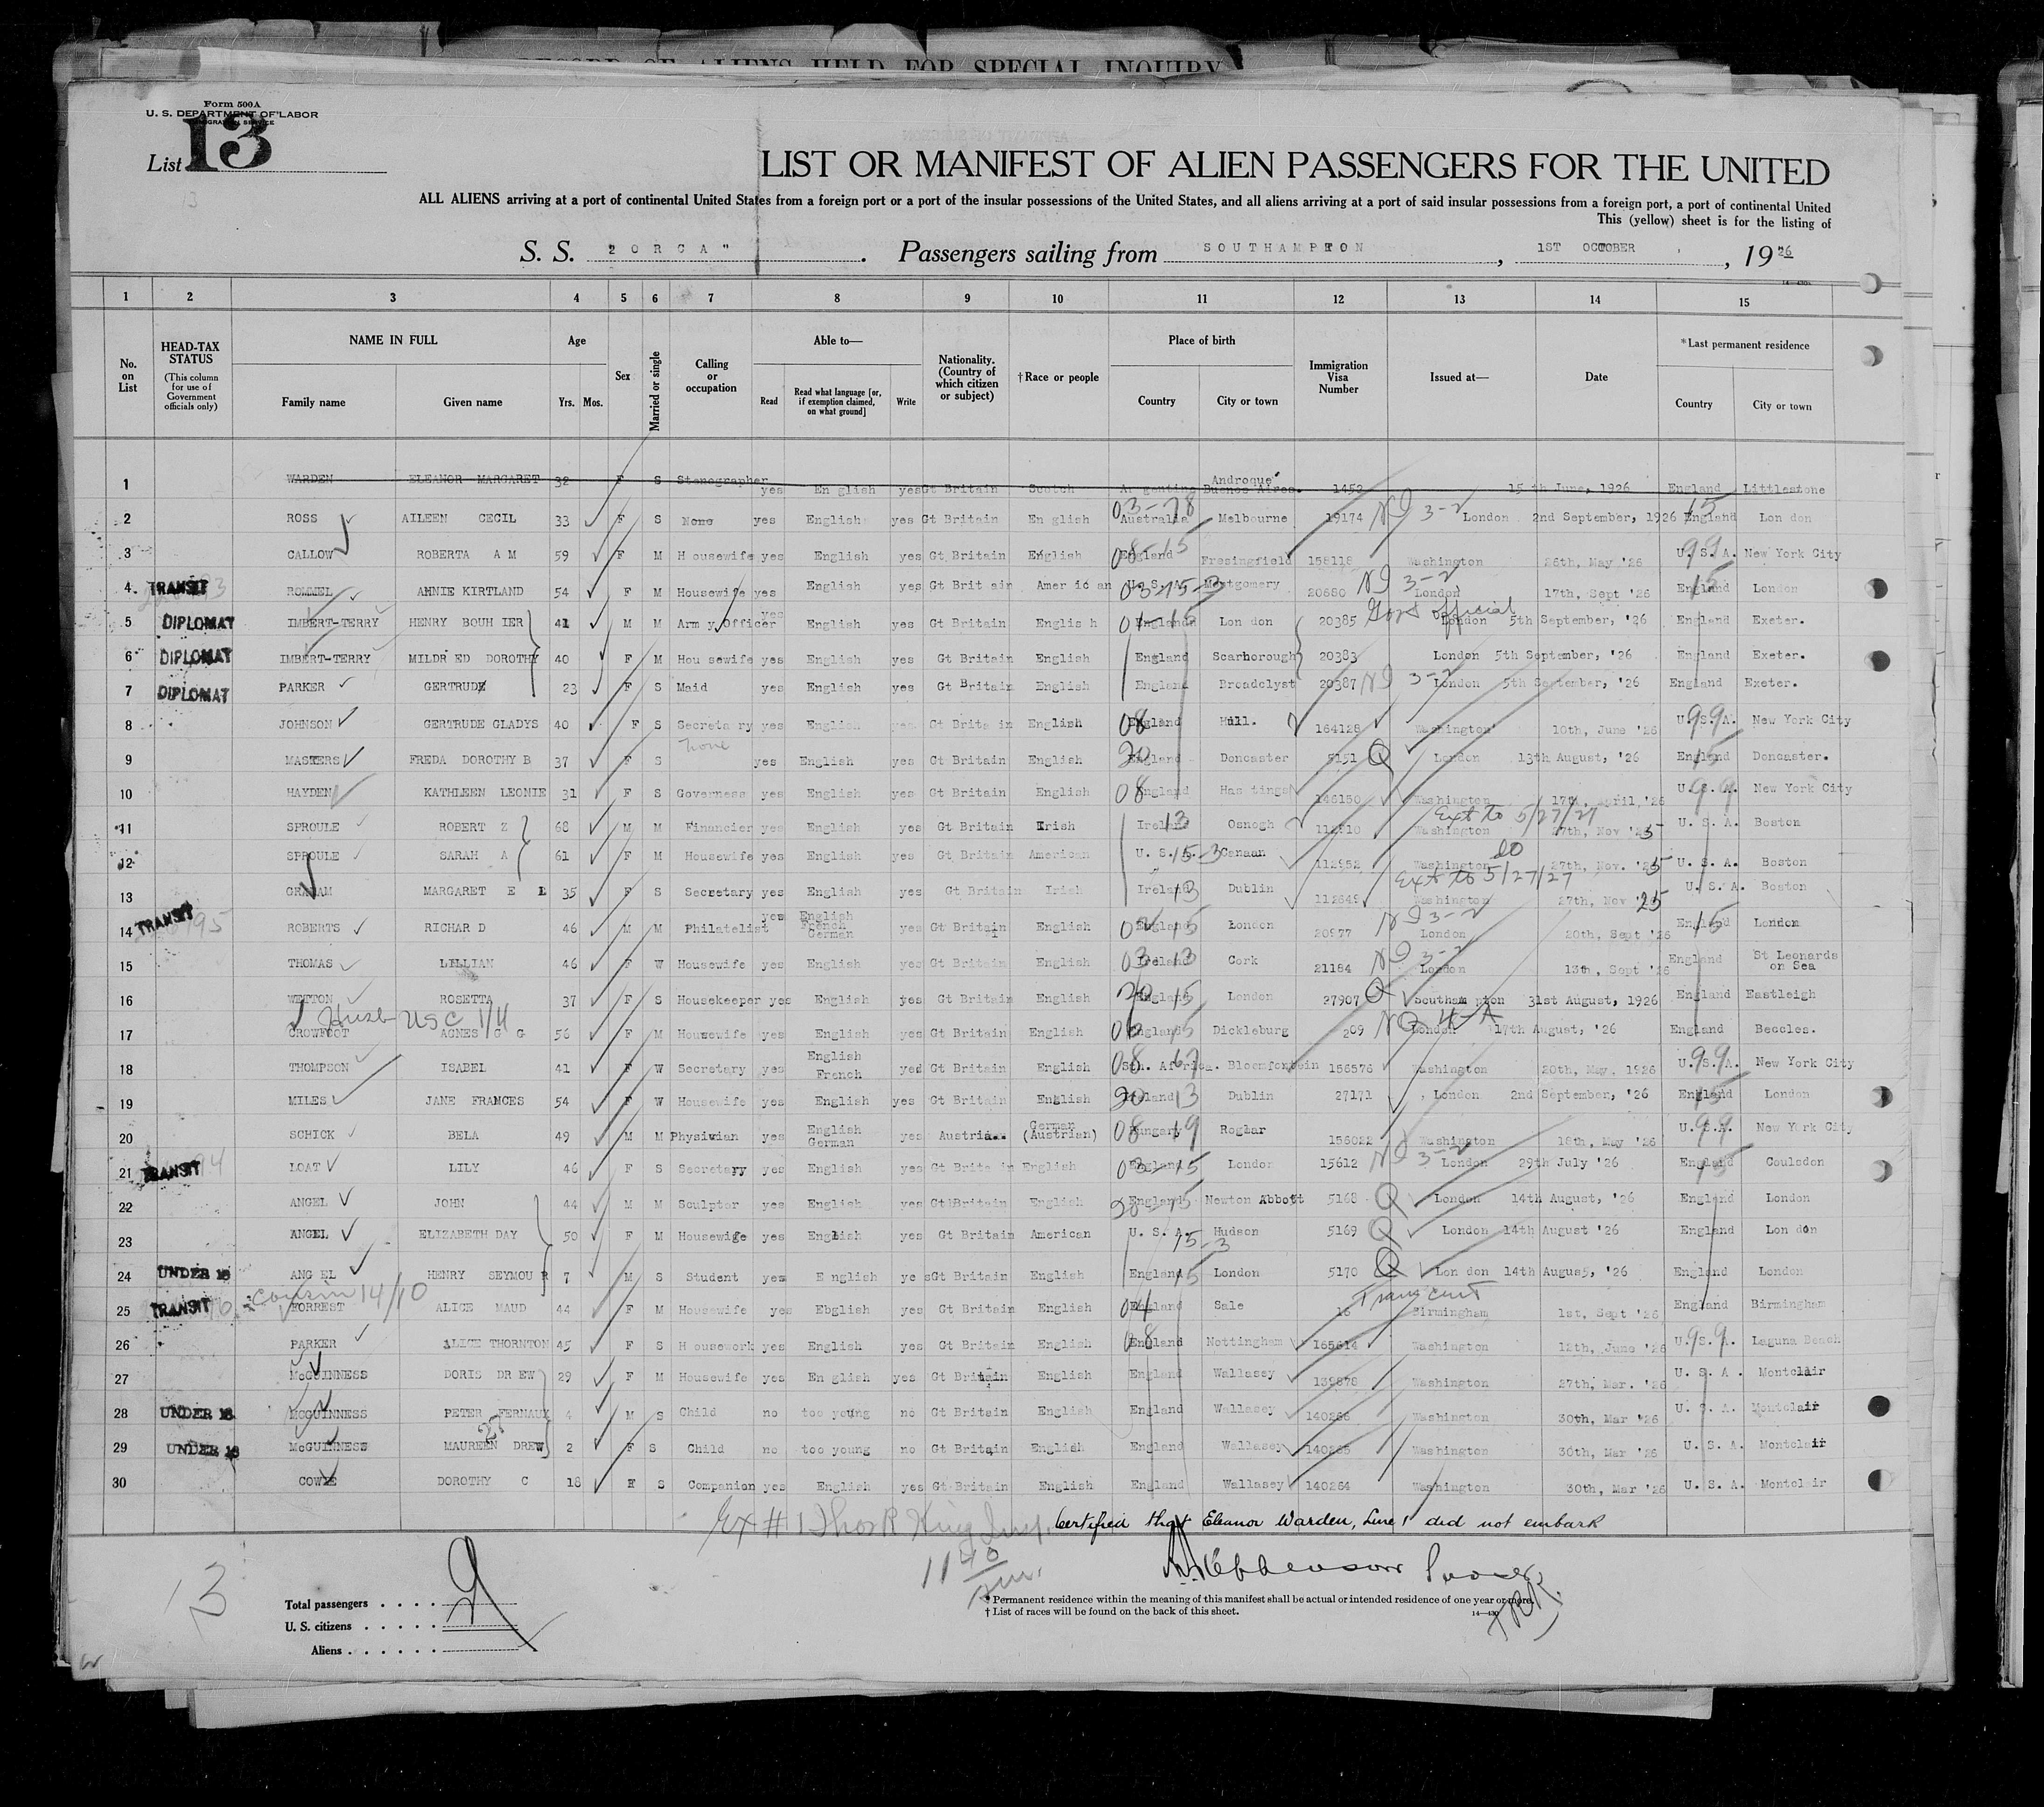 RECORD OF ALIENS HELD FOR SPECIAL INQUIRY
Form 500A
U. S. DEPARTMENT OF LABOR
IMMIGRATION SERVICE
List 13
13
LIST OR MANIFEST OF ALIEN PASSENGERS FOR THE UNITED
ALL ALIENS arriving at a port of continental United States from a foreign port or a port of the insular possessions of the United States, and all aliens arriving at a port of said insular possessions from a foreign port, a port of continental United
This (yellow) sheet is for the listing of
S. S. 2 O R C A " . Passengers sailing from SOUTHAMPTON , 1ST OCTOBER , 19 26
1 2 3 4 5 6 7 8 9 10 11 12 13 14 15
No. on List HEAD-TAX STATUS (This column for use of Government officials only) NAME IN FULL Family name Given name Age Yrs. Mos. Sex Married or single Calling or occupation Able to— Read Read what language [or, if exemption claimed, on what ground] Write Nationality. (Country of which citizen or subject) †Race or people Place of birth Country City or town Immigration Visa Number Issued at— Date *Last permanent residence Country City or town
1 WARDEN ELEANOR MARGARET 32 F S Stenographer yes En glish yes Gt Britain Scotch Argentina Androque Buenos Aires. 1452 15 th June, 1926 England Littlestone
2 ROSS AILEEN CECIL 33 F S None yes English yes Gt Britain En glish 03-78 Australia Melbourne 19174 3-2 London 2nd September, 1926 England 15 Lon don
3 CALLOW ROBERTA A M 59 F M H ousewife yes English yes Gt Britain English 08-15 England Fresingfield 158118 Washington 26th, May '26 U. S. A. 99 New York City
4 TRANSIT ROMMEL ANNIE KIRTLAND 54 F M Housewife yes English yes Gt Brit ain Amer ic an 03-15-3 U. S. A. Montgomery 20680 3-2 London 17th, Sept '26 England 15 London
5 DIPLOMAT IMBERT-TERRY HENRY BOUH IER 41 M M Arm y Officer yes English yes Gt Britain Englis h 01-15 England Lon don 20385 Govt official London 5th September, '26 England Exeter.
6 DIPLOMAT IMBERT-TERRY MILDR ED DOROTHY 40 F M Hou sewife yes English yes Gt Britain English England Scarborough 20383 London 5th September, '26 England Exeter.
7 DIPLOMAT PARKER GERTRUDE 23 F S Maid yes English yes Gt Britain English England Broadclyst 20387 3-2 London 5th September, '26 England Exeter.
8 JOHNSON GERTRUDE GLADYS 40 F S Secreta ry yes English yes Gt Brita in English 08 England Hull. 164128 Washington 10th, June '26 U. S. A. 99 New York City
9 MASTERS FREDA DOROTHY B 37 F S None yes English yes Gt Britain English 20 England Doncaster 5151 Q London 13th August, '26 England 15 Doncaster.
10 HAYDEN KATHLEEN LEONIE 31 F S Governess yes English yes Gt Britain English 08 England Has tings 146150 Washington 17th, April,'26 U. S. A. 99 New York City
11 SPROULE ROBERT Z 68 M M Financier yes English yes Gt Britain Irish Ireland 13 Osnogh Ext to 5/27/27 Washington 27th, Nov '25 U. S. A. Boston
12 SPROULE SARAH A 61 F M Housewife yes English yes Gt Britain American U. S. 15-3 Canaan 112952 Washington do 27th, Nov. '25 U. S A. Boston
13 GRAHAM MARGARET E L 35 F S Secretary yes English yes Gt Britain Irish Ireland 13 Dublin 112649 Ext to 5/27/27 Washington 27th, Nov 25 U. S A. Boston
14 TRANSIT ROBERTS RICHAR D 46 M M Philatelist yes English French German yes Gt Britain English 02 England 15 London 20977 3-2 London 20th, Sept '26 England 15 London
15 THOMAS LILLIAN 46 F W Housewife yes English yes Gt Britain English 03 Ireland 13 Cork 21184 3-2 London 13th, Sept '26 England St Leonards on Sea
16 WETTON ROSETTA 37 F S Housekeeper yes English yes Gt Britain English 20 England 15 London 27907 Q Southam pton 31st August, 1926 England Eastleigh
Husb USC 1/4
17 CROWFOOT AGNES G G 56 F M Housewife yes English yes Gt Britain English England 15 Dickleburg 209 NQ 4-A London 17th August, '26 England Beccles.
18 THOMPSON ISABEL 41 F W Secretary yes English French yes Gt Britain English 08 Sth. Africa. 67 Bloemfontein 156576 Washington 20th, May, 1926 U. S. A. 99 New York City
19 MILES JANE FRANCES 54 F W Housewife yes English yes Gt Britain English 20 Ireland 13 Dublin 27171 London 2nd September, '26 England 15 London
20 SCHICK BELA 49 M M Physician yes English German yes Austria. German (Austrian) 08 Hungary 19 Roglar 156022 Washington 18th, May '26 U. S. A. 99 New York City
21 TRANSIT LOAT LILY 46 F S Secretary yes English yes Gt Brita in English 03 England 15 London 15612 3-2 London 29th July '26 England 15 Coulsdon
22 ANGEL JOHN 44 M M Sculptor yes English yes Gt Britain English 20 England 15 Newton Abbott 5168 Q London 14th August, '26 England London
23 ANGEL ELIZABETH DAY 50 F M Housewife yes English yes Gt Britain American U. S. A. 15-3 Hudson 5169 Q London 14th August '26 England Lon don
24 UNDER 16 ANG EL HENRY SEYMOU R 7 M S Student yes E nglish ye s Gt Britain English England 15 London 5170 Q Lon don 14th Augus5, '26 England London
cousin 14/10
25 TRANSIT FORREST ALICE MAUD 44 F M Housewife yes Ebglish yes Gt Britain English 04 England Sale 16 Trans cert Birmingham 1st, Sept '26 England Birmingham
26 PARKER ALICE THORNTON 45 F S H ousework yes English yes Gt Britain English 08 England Nottingham 165614 Washington 12th, June '26 U. S. A. 99 Laguna Beach
27 McGUINNESS DORIS DR EW 29 F M Housewife yes En glish yes Gt Britain English England Wallasey 139878 Washington 27th, Mar. '26 U. S. A . Montclair
28 UNDER 16 MCGUINNESS PETER FERNAUX 4 M S Child no too young no Gt Britain English England Wallasey 140266 Washington 30th, Mar '26 U. S. A. Montclair
29 UNDER 16 McGUINNESS MAUREEN DREW 2 F S Child no too young no Gt Britain English England Wallasey 140265 Washington 30th, Mar '26 U. S. A. Montclair
30 COWIE DOROTHY C 18 F S Companion yes English yes Gt Britain English England Wallasey 140264 Washington 30th, Mar '26 U. S. A. Montclair
Ex # 1 Thos R King Insp. Certified that Eleanor Warden, Line 1 did not embark
11 40 am.
13
Total passengers . . . .
U. S. citizens . . . . .
Aliens . . . . . .
* Permanent residence within the meaning of this manifest shall be actual or intended residence of one year or more.
† List of races will be found on the back of this sheet.
14—430